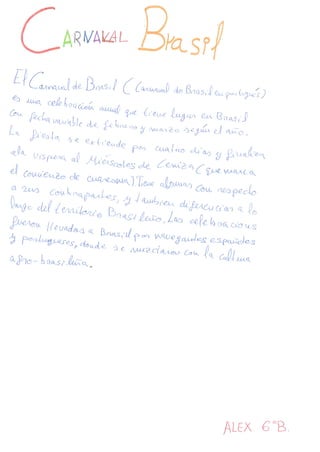 CARNAVAL BRASil
El Carnaval de Brasil (Carnaval do Brasil en portugués)
es una celebración anual que tiene lugar en Brasil
con fecha variable de febrero y marzo según el año.
La fiesta se extiende por cuatro días y finaliza
a la vispera al Miércoles de Ceniza (que marca
el comienzo de cuaresma) Tiene algunas con respecto
a sus contrapartes, y tambien diferencias a lo
largo del territorio Brasileño. Las celebraciones
fueron llevadas a Brasil por navegantes españoles
y portugueses, donde se mezclaron con la cultura
afro-brasileña.
ALEX 6ºB.